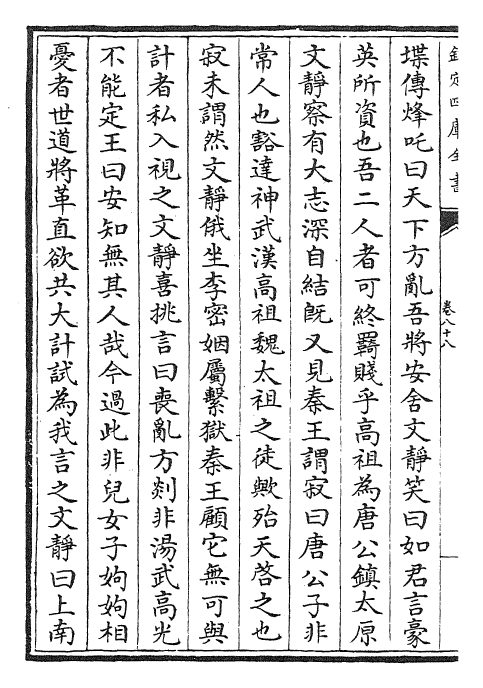 欽定四庫全書
卷八十八
堞傳烽吒曰天下方亂吾將安舍文靜笑曰如君言豪
英所資也吾二人者可終羇賤乎高祖為唐公鎮太原
文靜察有大志深自結既又見秦王謂寂曰唐公子非
常人也豁達神武漢高祖魏太祖之徒歟殆天啓之也
寂未謂然文靜俄坐李密姻屬繫獄秦王顧它無可與
計者私入視之文靜喜挑言曰喪亂方剡非湯武高光
不能定王曰安知無其人哉今過此非兒女子姁姁相
憂者世道將革直欲共大計試為我言之文靜曰上南